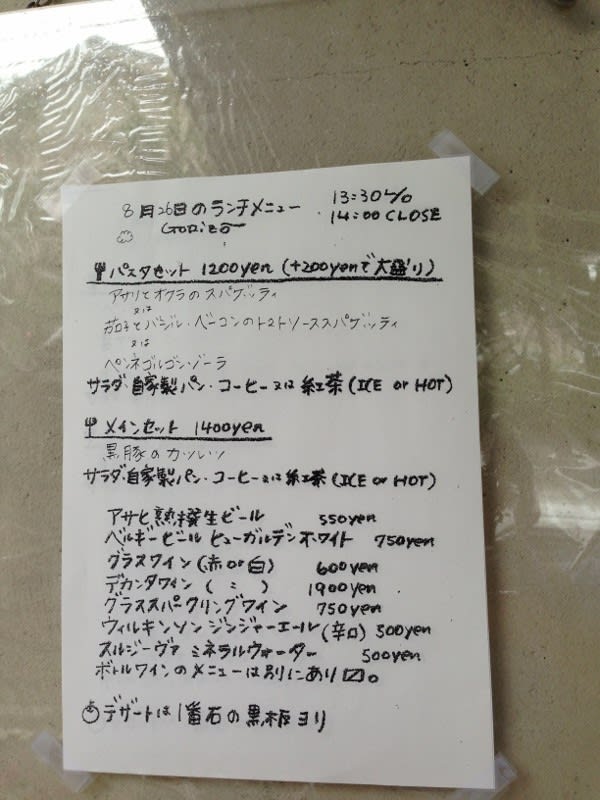 8月26日のランチメニュー
13:30 L/o
14:00 CLOSE
パスタセット 1200yen (+200yenで大盛り)
アサリとオクラのスパゲッティ
又は
茄子とバジル・ベーコンのトマトソーススパゲッティ
又は
ペンネゴルゴンゾーラ
サラダ・自家製パン・コーヒー又は紅茶 (ICE or HOT)
メインセット 1400yen
黒豚のカツレツ
サラダ・自家製パン・コーヒー又は紅茶 (ICE or HOT)
アサヒ熟撰生ビール 550yen
ベルギービール ヒューガルデンホワイト 750yen
グラスワイン (赤or白) 600yen
デカンタワイン ( 〃 ) 1900yen
グラススパークリングワイン 750yen
ウィルキンソン ジンジャーエール (辛口) 500yen
スルジーヴァ ミネラルウォーター 500yen
ボトルワインのメニューは別にあり〼。
デザートは1番石の黒板ヨリ